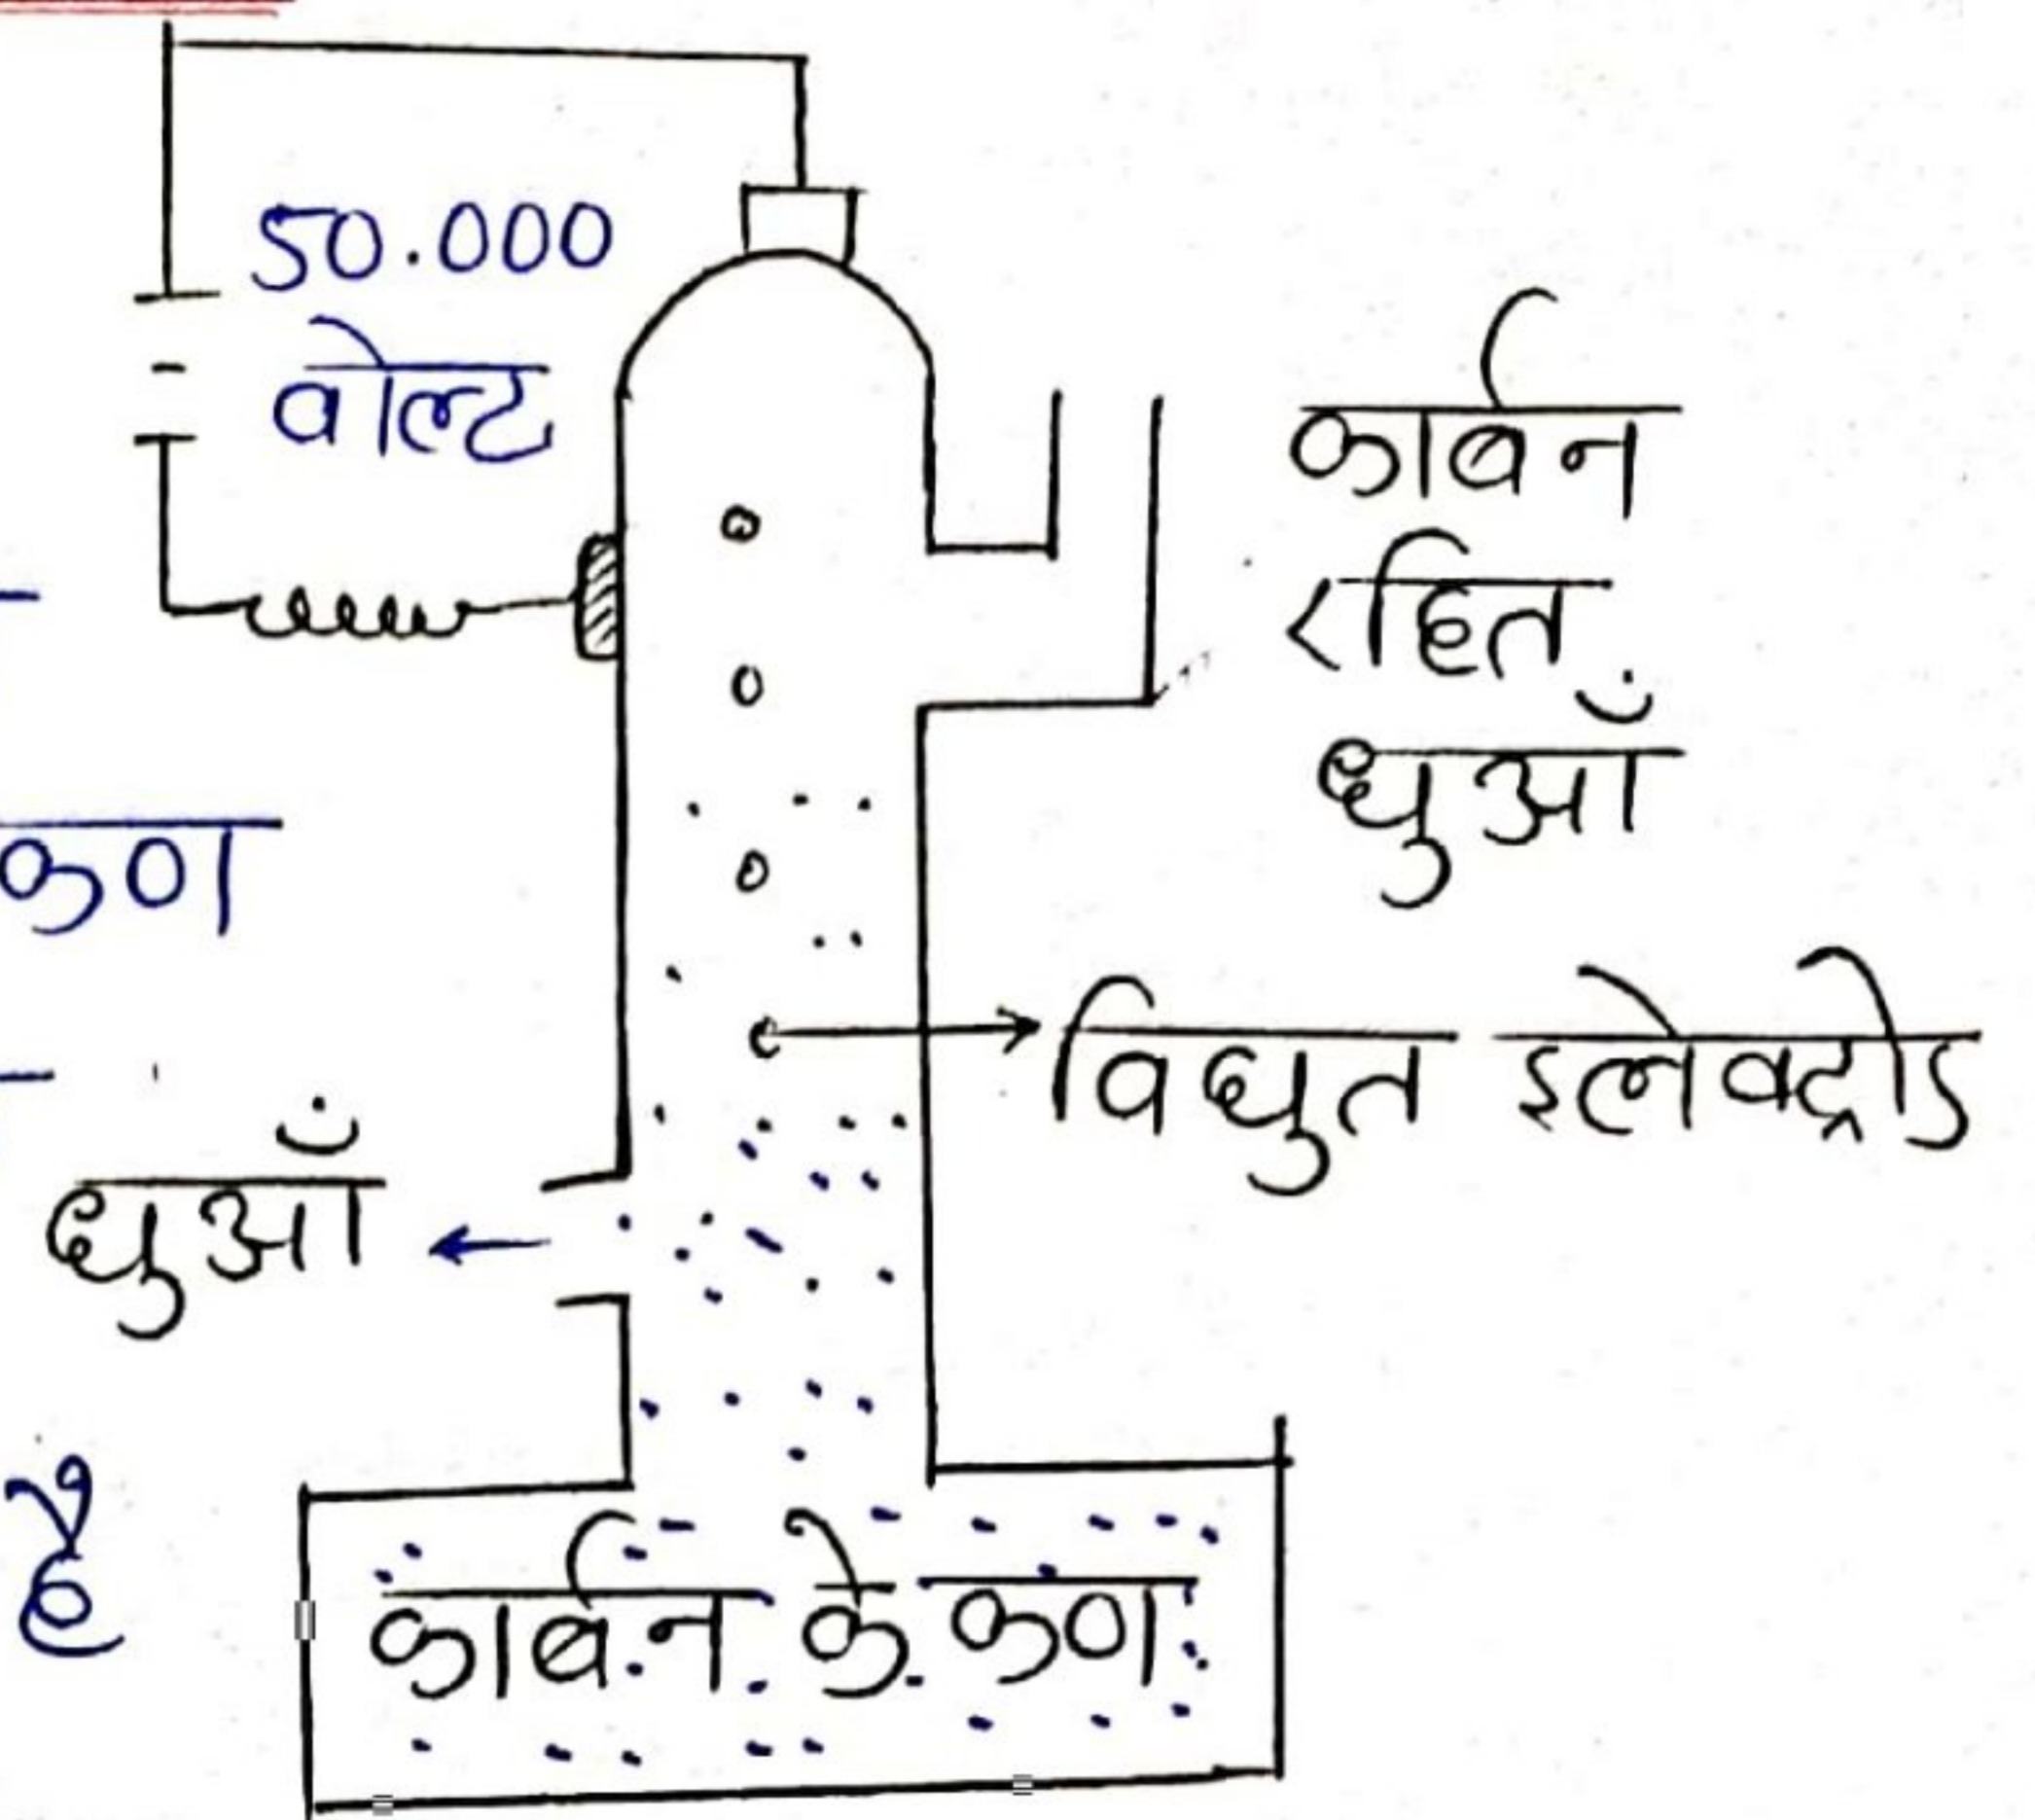 50.000
वोल्ट
कार्बन
रहित
धुआँ
कण
विधुत इलेक्ट्रोड
धुआँ
है
कार्बन के कण